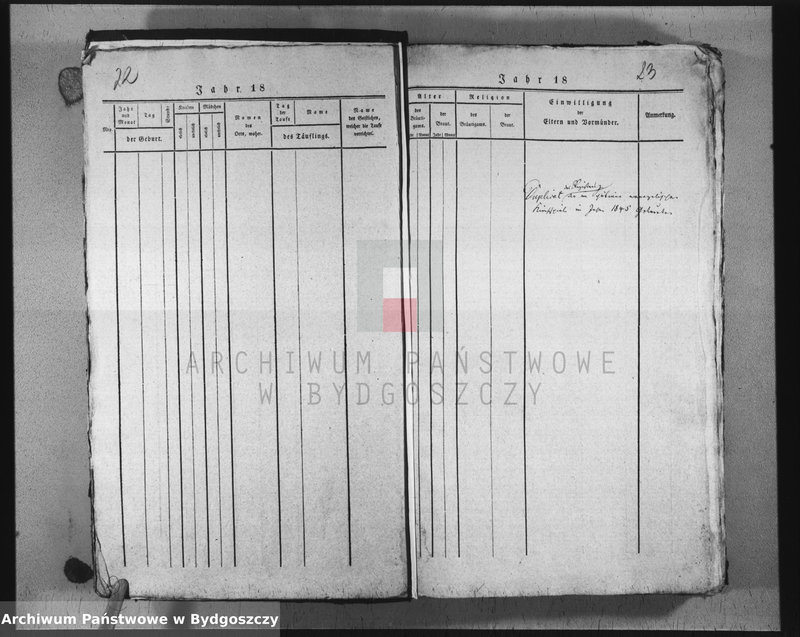 22
Jahr. 18
Nro.
Jahr
und
Monat
Tag
Stunde
der Geburt.
Knaben
Mädchen
ehelich
unehelich
ehelich
unehelich
Namen
des
Orts, woher.
Tag
der
Taufe
Name
des Täuflings.
Name
des Geistlichen,
welcher die Taufe
verrichtet.
23
Jahr 18
Alter
des
Bräuti-
gams.
der
Braut.
Jahr Monat
Religion
des
Bräutigams.
der
Braut.
Einwilligung
der
Eltern und Vormünder.
Anmerkung.
Duplicat der in evangelischen
Kirchspiel im Jahre 1845
ARCHIWUM PAŃSTWOWE
W BYDGOSZCZY
Archiwum Państwowe w Bydgoszczy